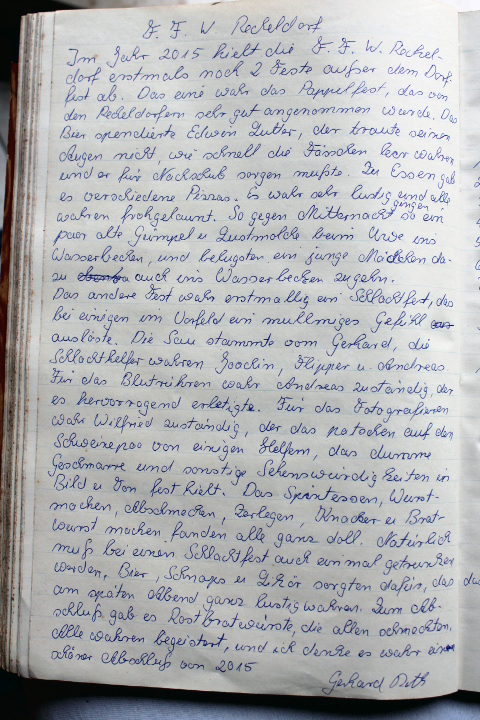 F. F. W Reckeldorf
Im Jahr 2015 hielt die F. F. W. Reckel-
dorf erstmals noch 2 Feste außer dem Dorf-
fest ab. Das eine wahr das Pappelfest, das von
den Reckeldorfern sehr gut angenommen wurde. Das
Bier spendierte Edwin, der traute seinen
Augen nicht, wie schnell die Fässchen leer wahren
und er für Nachschub sorgen mußte. Zu Essen gab
es verschiedene Pizzas. Es wahr sehr lustig und alle
wahren frohgelaunt. So gegen Mitternacht gingen so ein
paar alte Gümpel u Lustmolche beim Uwe ins
Wasserbecken, und belugsten ein junge Mädchen da-
zu auch ins Wasserbecken zu gehn.
Das andere Fest wahr erstmallig ein Schlachtfest, das
bei einigen im Vorfeld ein mullmiges Gefühl
auslöste. Die Sau stammte vom Gerhard, die
Schlachthelfer wahren Joachin, Flipper u. Andreas.
Für das Blutrühren wahr Andreas zuständig, der
es hervorragend erletigte. Für das Fotografieren
wahr Wilfried zuständig, der das patschen auf den
Schweinepoo von einigen Helfern, das dumme
Geschmarre und sonstige Sehenswürdigkeiten in
Bild u Ton fest hielt. Das Spintessen, Wurst-
machen, Abschmecken, Zerlegen, Knocker u Brat-
wurst machen fanden alle ganz doll. Natürlich
muß bei einen Schlachtfest auch einmal getrunken
werden, Bier, Schnaps u Likör sorgten dafür, das das
am späten Abend ganz lustig wahren. Zum Ab-
schluß gab es Rostbratwürste, die allen schmeckten.
Alle wahren begeistert, und ich denke es wahr ein
schöner Abschluß von 2015
Gerhard